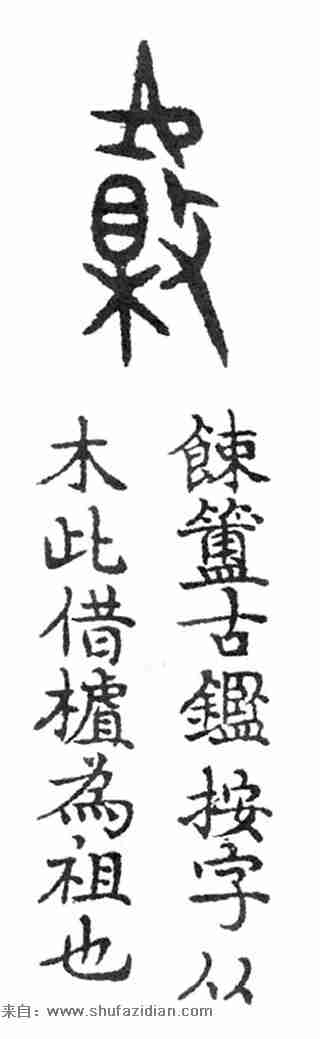 餗簠古鑑按字从
木此借樝為祖也
来自：www.shufazidian.com